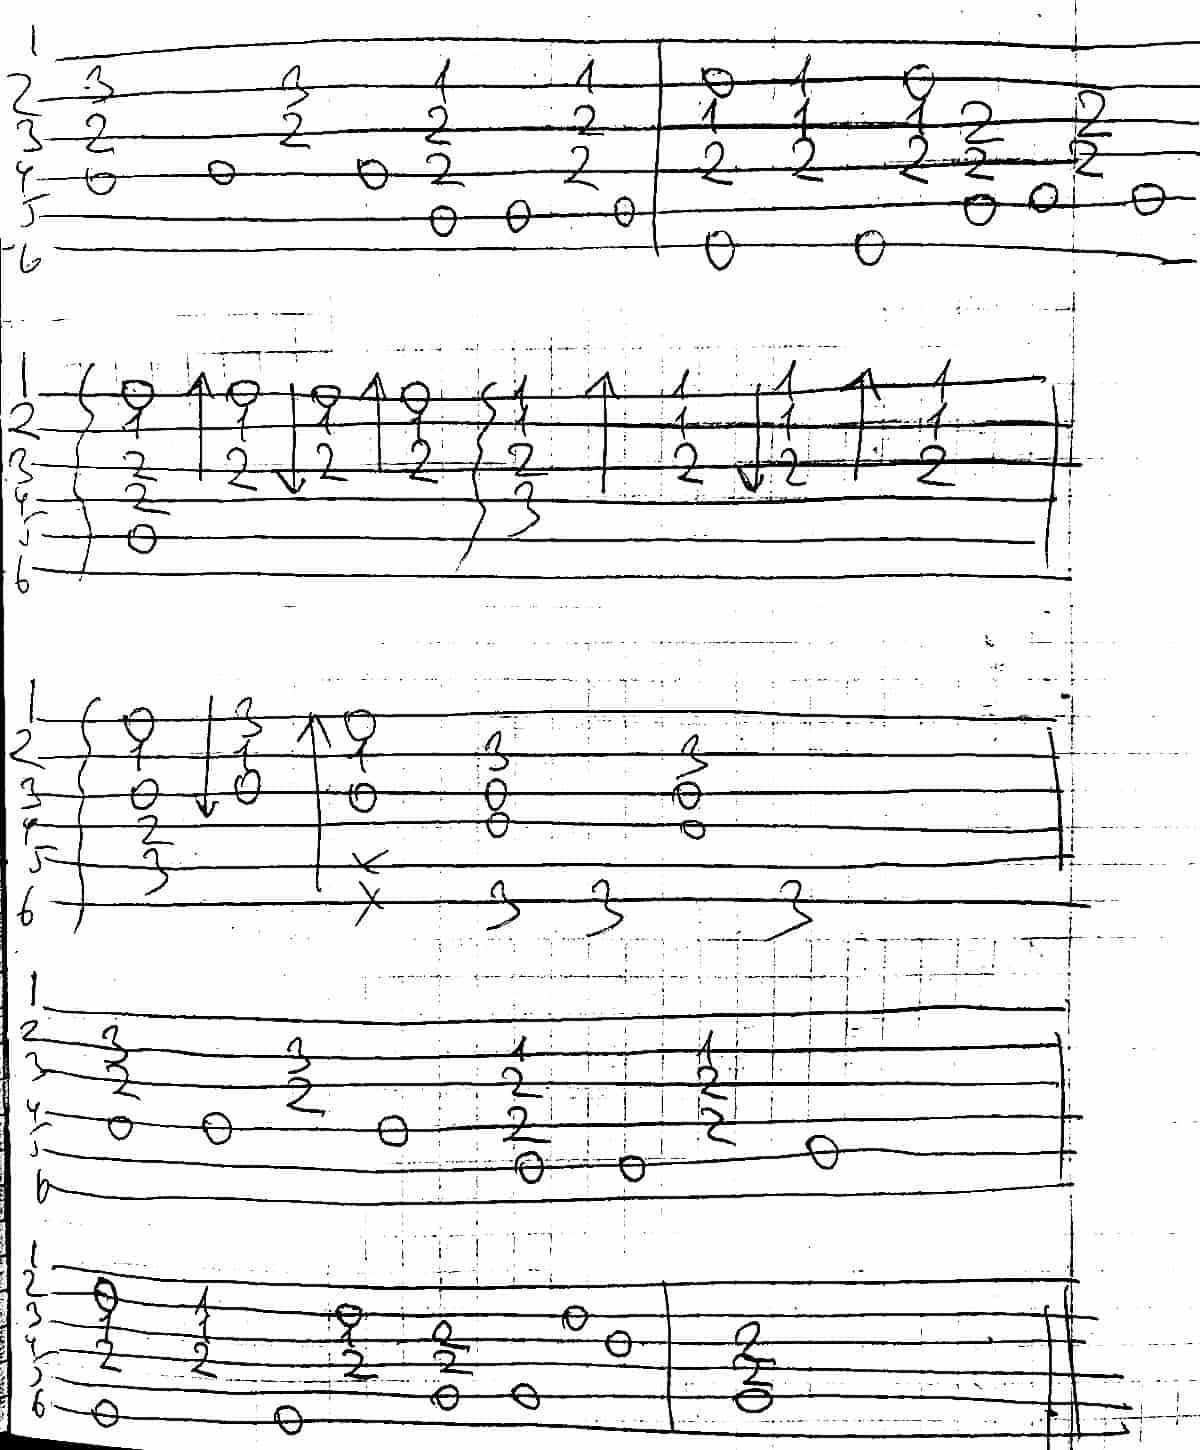 1
2 3 3 1 1 0 1 0
3 2 2 2 2 1 1 1 2 2
4 0 0 0 2 2 2 2 2 2 2
5 0 0 0 0 0 0
6 0 0
1 0 0 0 0 1 1 1 1
2 1 1 1 1 1 1 1 1
3 2 2 2 2 2 2 2 2
4 2 3
5 0
6
1 0 3 0
2 1 1 1 3 3
3 0 0 0 0 0
4 2 0 0
5 3 x
6 x 3 3 3
1
2 3 3 1 1
3 2 2 2 2
4 0 0 0 2 2
5 0 0 0
6
1
2 0 1 0
3 1 1 1 2 0 2
4 2 2 2 2 0 2
5 0 0 0
6 0 0